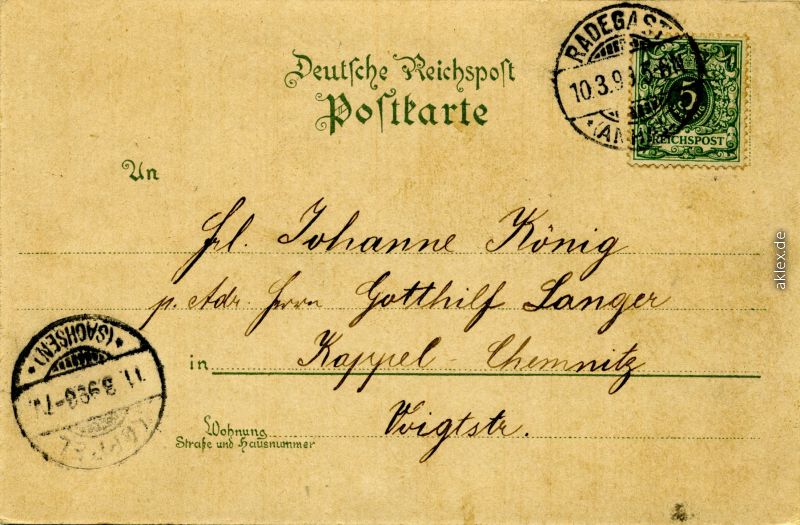 Deutsche Reichspost
Postkarte
RADEGAST
10.3.9
(ANHALT)
5
REICHSPOST
An
Frl. Johanne König
p. Adr. Herrn Gotthilf Langer
in Kappel-Chemnitz
Voigtstr.
Wohnung
Straße und Hausnummer
*(SACHSEN)*
11.3.99.6-7
KAPPEL
aklex.de